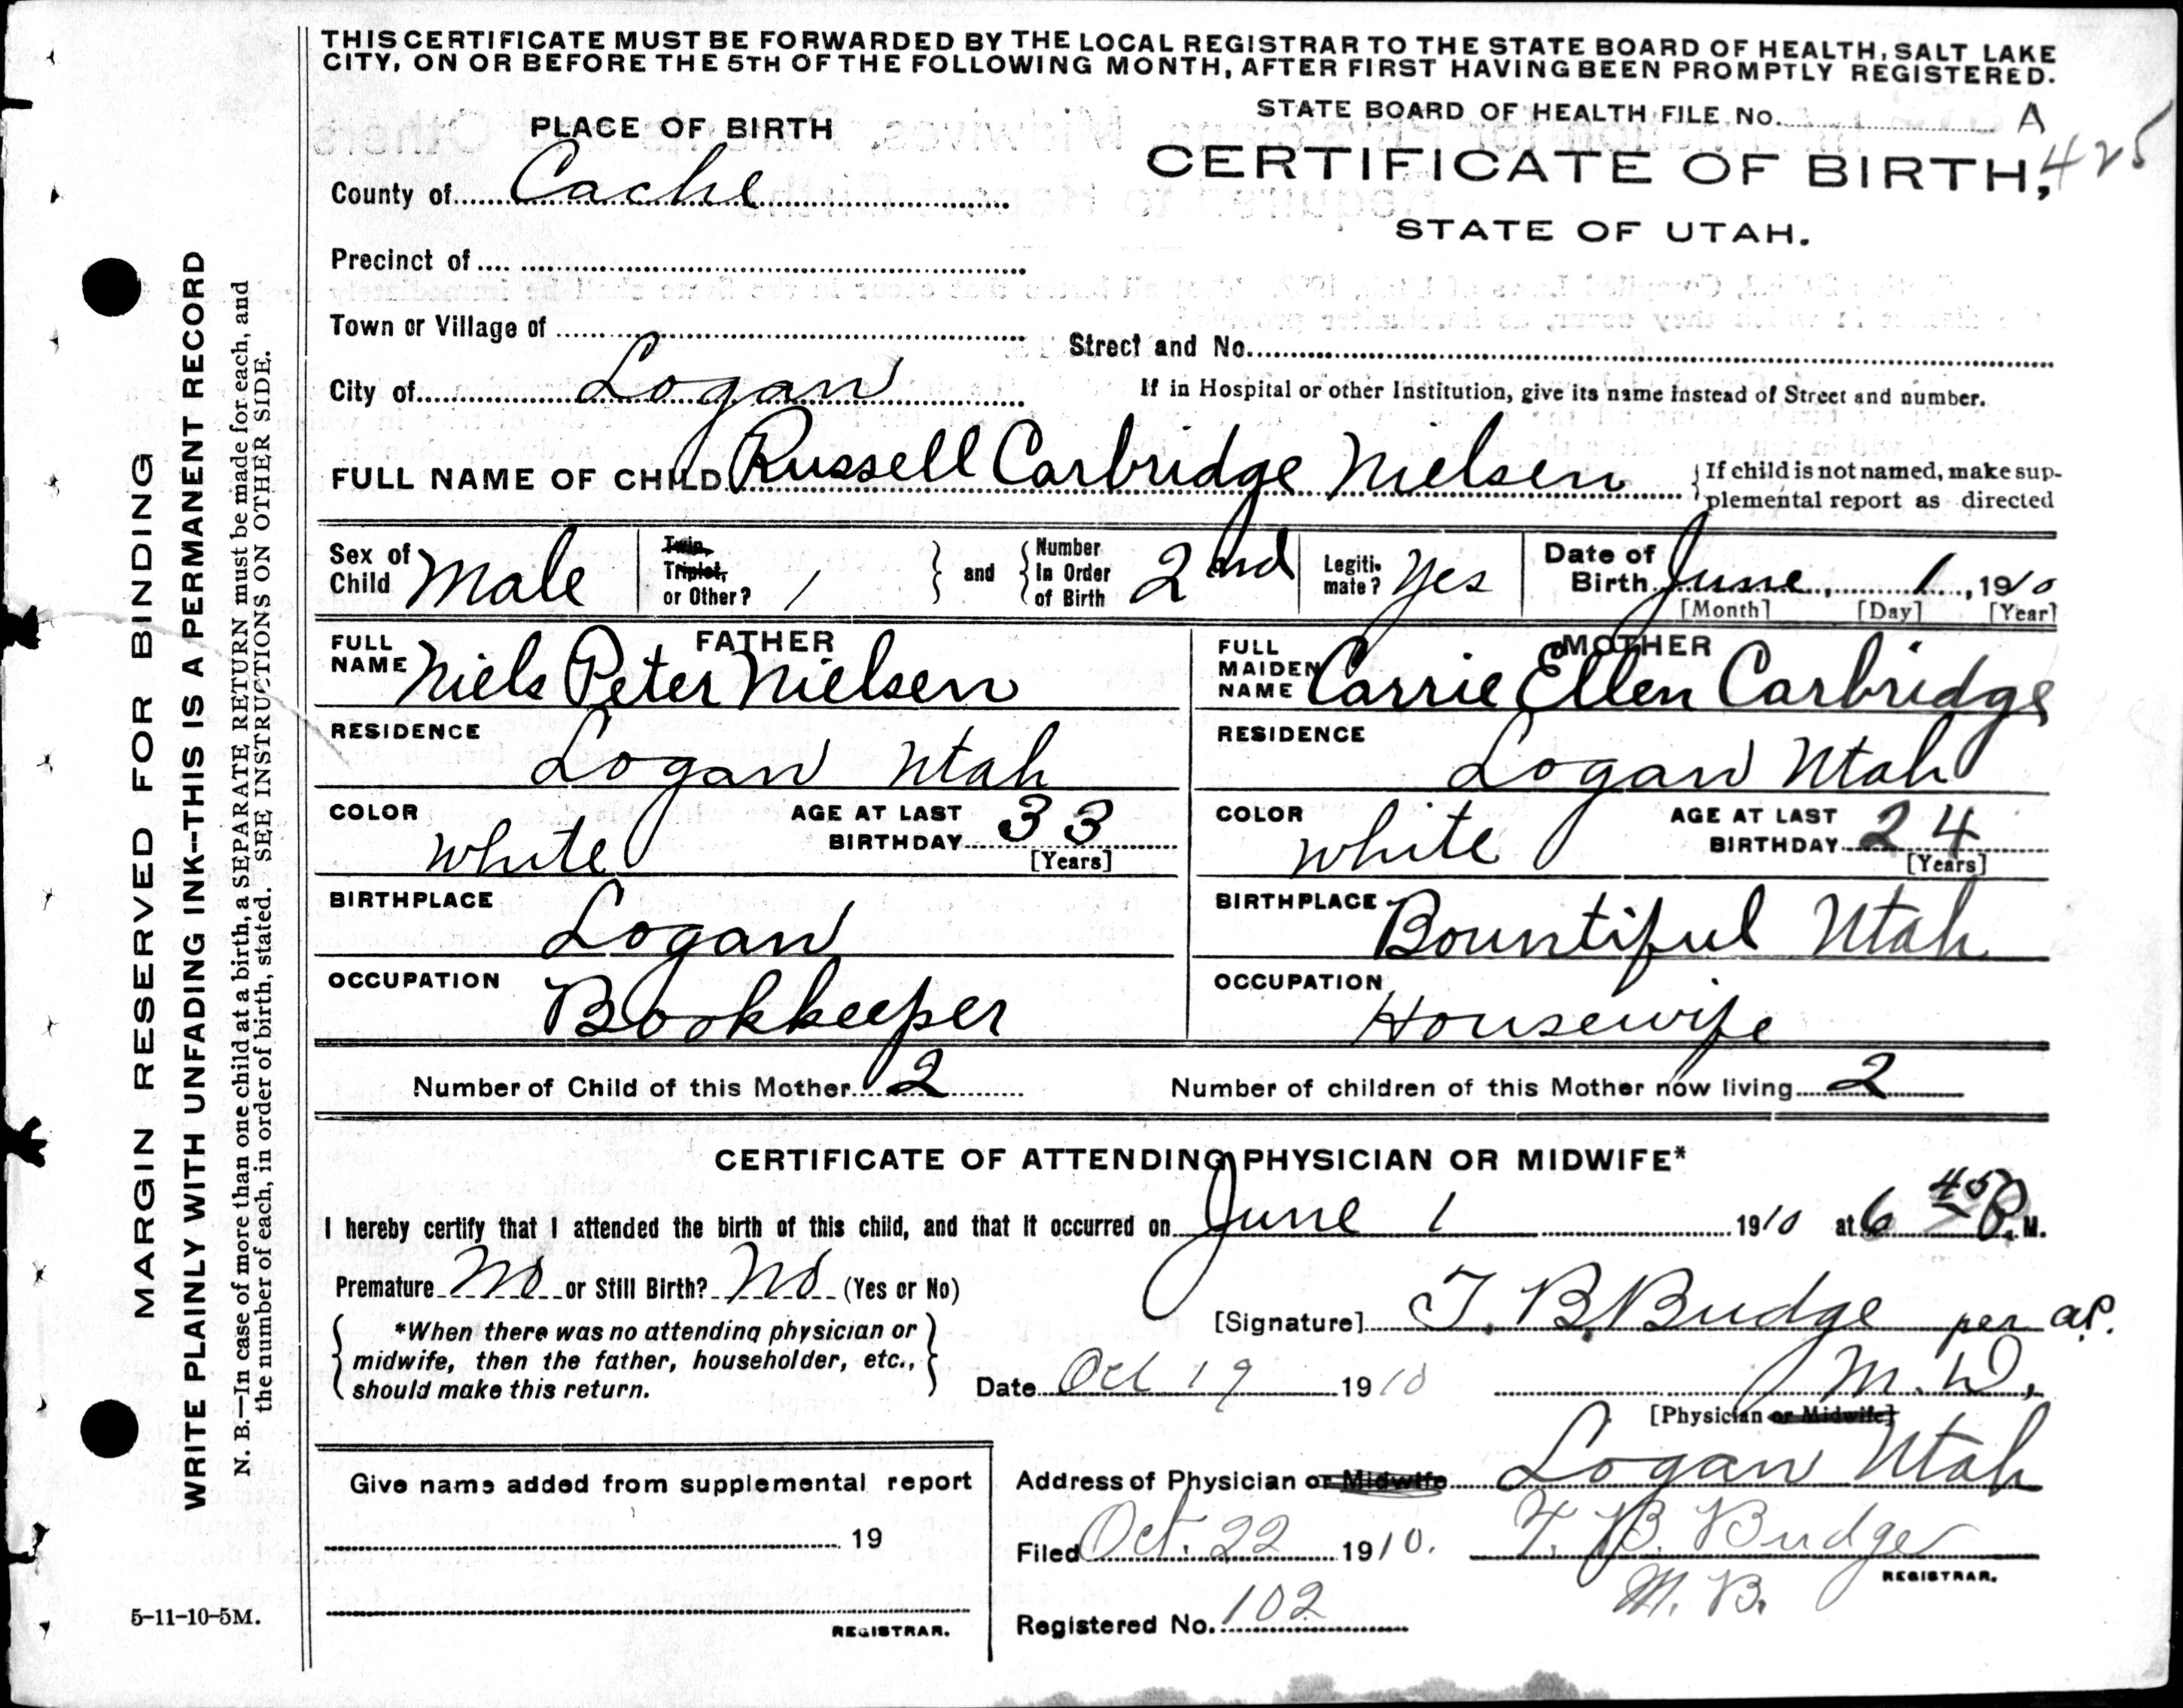 THIS CERTIFICATE MUST BE FORWARDED BY THE LOCAL REGISTRAR TO THE STATE BOARD OF HEALTH, SALT LAKE
CITY, ON OR BEFORE THE 5TH OF THE FOLLOWING MONTH, AFTER FIRST HAVING BEEN PROMPTLY REGISTERED.
STATE BOARD OF HEALTH FILE No. A
425
PLACE OF BIRTH
CERTIFICATE OF BIRTH,
County of Cache
STATE OF UTAH.
Precinct of
Town or Village of
Street and No.
City of Logan
If in Hospital or other Institution, give its name instead of Street and number.
FULL NAME OF CHILD Russell Carbridge Nielsen
If child is not named, make sup-
plemental report as directed
Sex of Child Male
Twin, Triplet, or Other? 1
and
Number In Order of Birth 2nd
Legiti-mate? Yes
Date of Birth June 1, 1910
[Month] [Day] [Year]
FATHER
FULL NAME Niels Peter Nielsen
RESIDENCE Logan Utah
COLOR white
AGE AT LAST BIRTHDAY 33
[Years]
BIRTHPLACE Logan
OCCUPATION Bookkeeper
MOTHER
FULL MAIDEN NAME Carrie Ellen Carbridge
RESIDENCE Logan Utah
COLOR white
AGE AT LAST BIRTHDAY 24
[Years]
BIRTHPLACE Bountiful Utah
OCCUPATION Housewife
Number of Child of this Mother 2
Number of children of this Mother now living 2
CERTIFICATE OF ATTENDING PHYSICIAN OR MIDWIFE*
I hereby certify that I attended the birth of this child, and that it occurred on June 1 1910 at 6 45 P. M.
Premature No or Still Birth? No (Yes or No)
*When there was no attending physician or
midwife, then the father, householder, etc.,
should make this return.
[Signature] T. B. Budge per a.P.
Date Oct 19 1910
M.D.
[Physician or Midwife]
Address of Physician or Midwife Logan Utah
Give name added from supplemental report
19
REGISTRAR.
Filed Oct. 22 1910.
T. B. Budge
REGISTRAR.
M. B.
Registered No. 102
MARGIN RESERVED FOR BINDING
WRITE PLAINLY WITH UNFADING INK--THIS IS A PERMANENT RECORD
N. B.—In case of more than one child at a birth, a SEPARATE RETURN must be made for each, and
the number of each, in order of birth, stated. SEE INSTRUCTIONS ON OTHER SIDE.
5-11-10-5M.